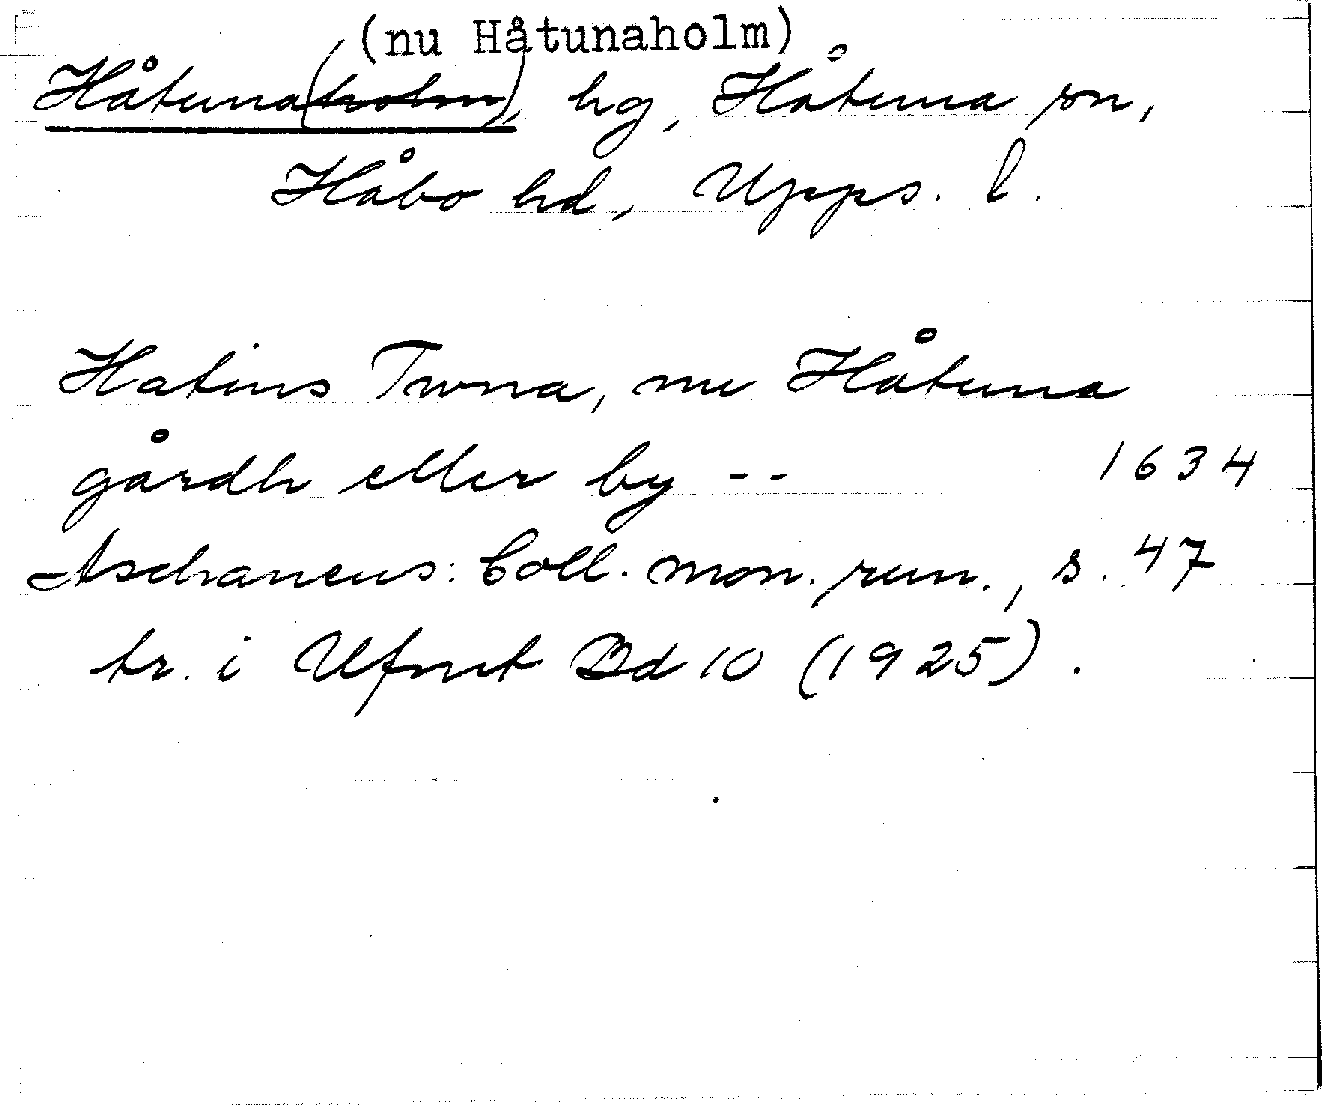 (nu Håtunaholm)
Håtuna(holm), hg, Håtuna sn,
Håbo hd, Upps. l.
Hatins Twna, nu Håtuna
gårdh eller by -- 1634
Aschaneus: Coll. mon. run., s. 47
tr. i Ufmt Bd 10 (1925).